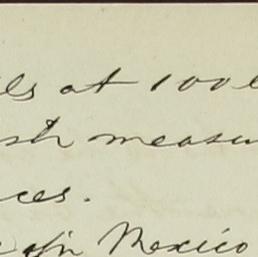 ls at 100
sh measu
ces.
in Mexico